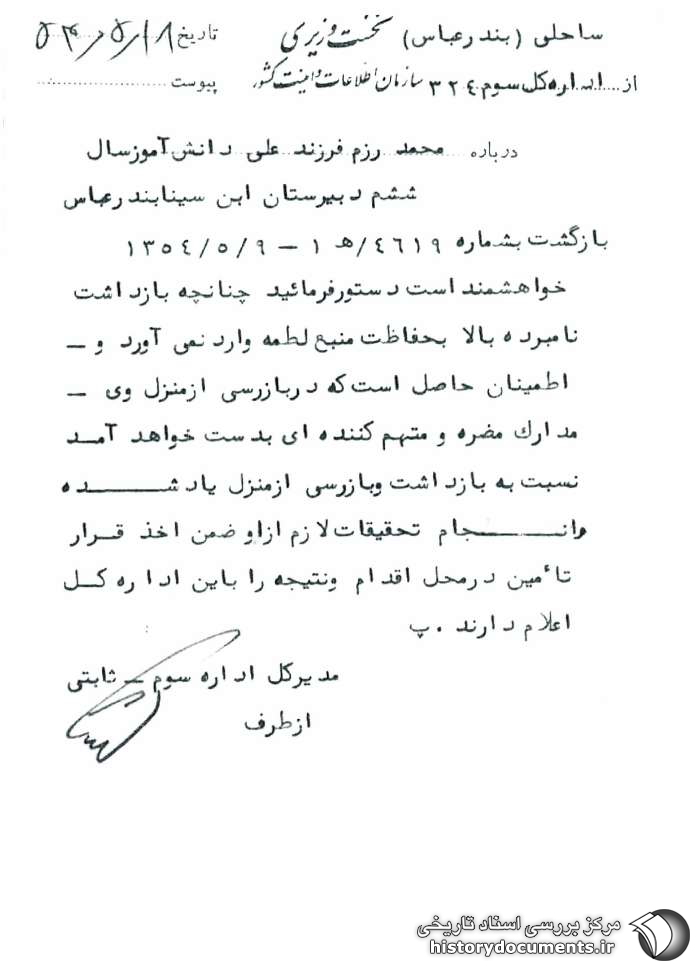 ساحلی (بندرعباس) نخست وزیری تاریخ ۵۴/۵/۱۸
از اداره کل سوم ۳۲۴ سازمان اطلاعات و امنیت کشور پیوست
درباره محمد رزم فرزند علی دانش آموز سال
ششم دبیرستان ابن سینا بندرعباس
بازگشت بشماره ۴۶۱۹/هـ ۱ – ۱۳۵۴/۵/۹
خواهشمند است دستور فرمائید چنانچه بازداشت
نامبرده بالا بحفاظت منبع لطمه وارد نمی آورد و –
اطمینان حاصل است که در بازرسی از منزل وی –
مدارك مضره و متهم کننده ای بدست خواهد آمد
نسبت به بازداشت وبازرسی از منزل یاد شده
وانجام تحقیقات لازم از او ضمن اخذ قرار
تأمین در محل اقدام ونتیجه را باین اداره کل
اعلام دارند . پ
مدیر کل اداره سوم – ثابتی
از طرف
مرکز بررسی اسناد تاریخی
historydocuments.ir